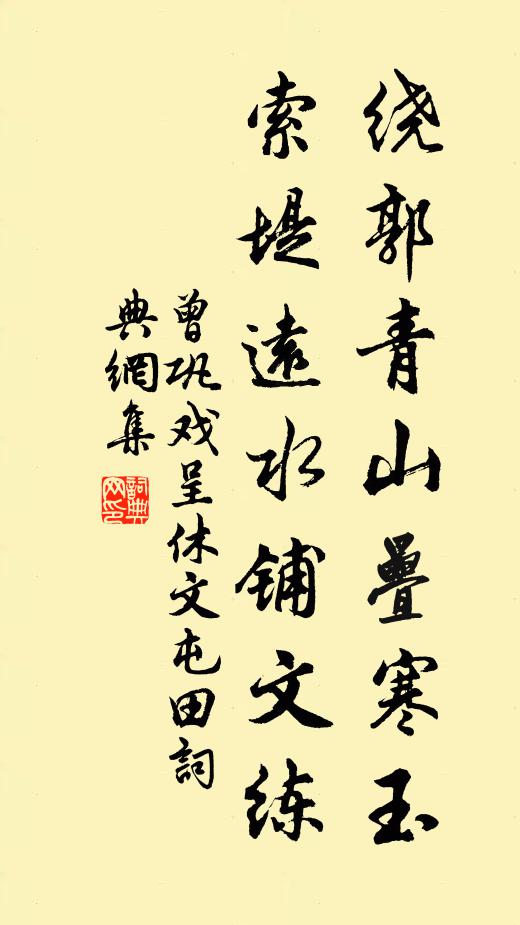 绕郭青山疊寒玉
索堤遠水铺文练
曾巩戏呈休文屯田詞
典網集
詞典網印